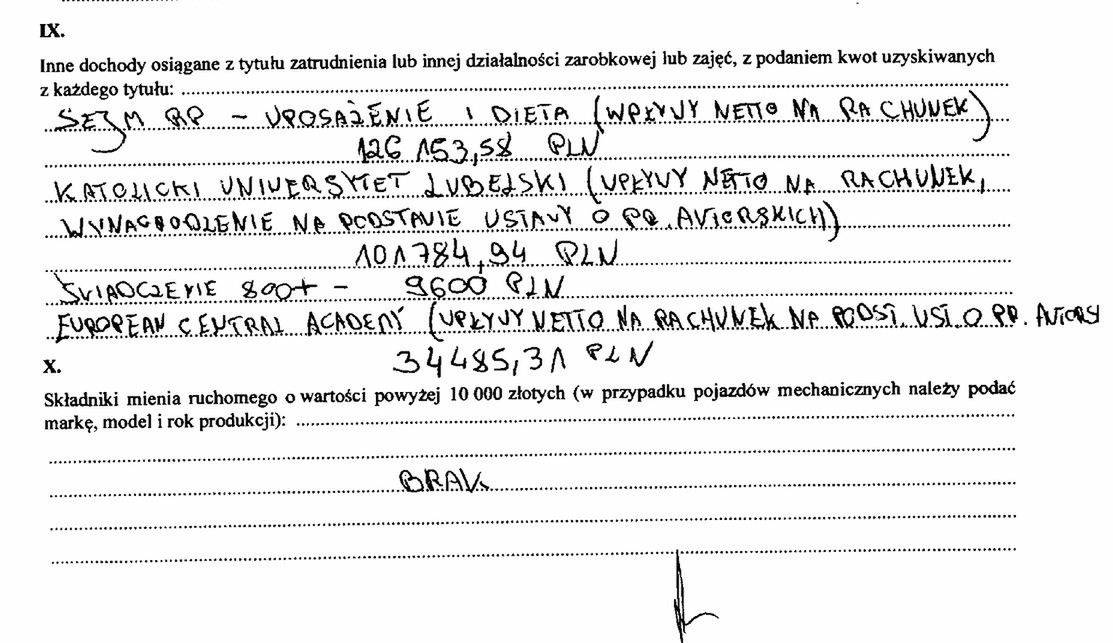 IX.
Inne dochody osiągane z tytułu zatrudnienia lub innej działalności zarobkowej lub zajęć, z podaniem kwot uzyskiwanych
z każdego tytułu:
SEJM RP - UPOSAŻENIE I DIETA (WPŁYWY NETTO NA RACHUNEK)
126 153,58 PLN
KATOLICKI UNIWERSYTET LUBELSKI (WPŁYWY NETTO NA RACHUNEK,
WYNAGRODZENIE NA PODSTAWIE USTAWY O PR. AUTORSKICH)
101784,94 PLN
ŚWIADCZENIE 800+ - 9600 PLN
EUROPEAN CENTRAL ACADEMY (WPŁYWY NETTO NA RACHUNEK NA PODST. UST. O PR. AUTORS
34485,31 PLN
X.
Składniki mienia ruchomego o wartości powyżej 10 000 złotych (w przypadku pojazdów mechanicznych należy podać
markę, model i rok produkcji):
BRAK